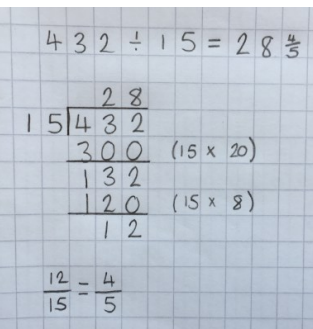 432 ÷ 15 = 28 4/5
28
15)432
300 (15 × 20)
132
120 (15 × 8)
12
12/15 = 4/5